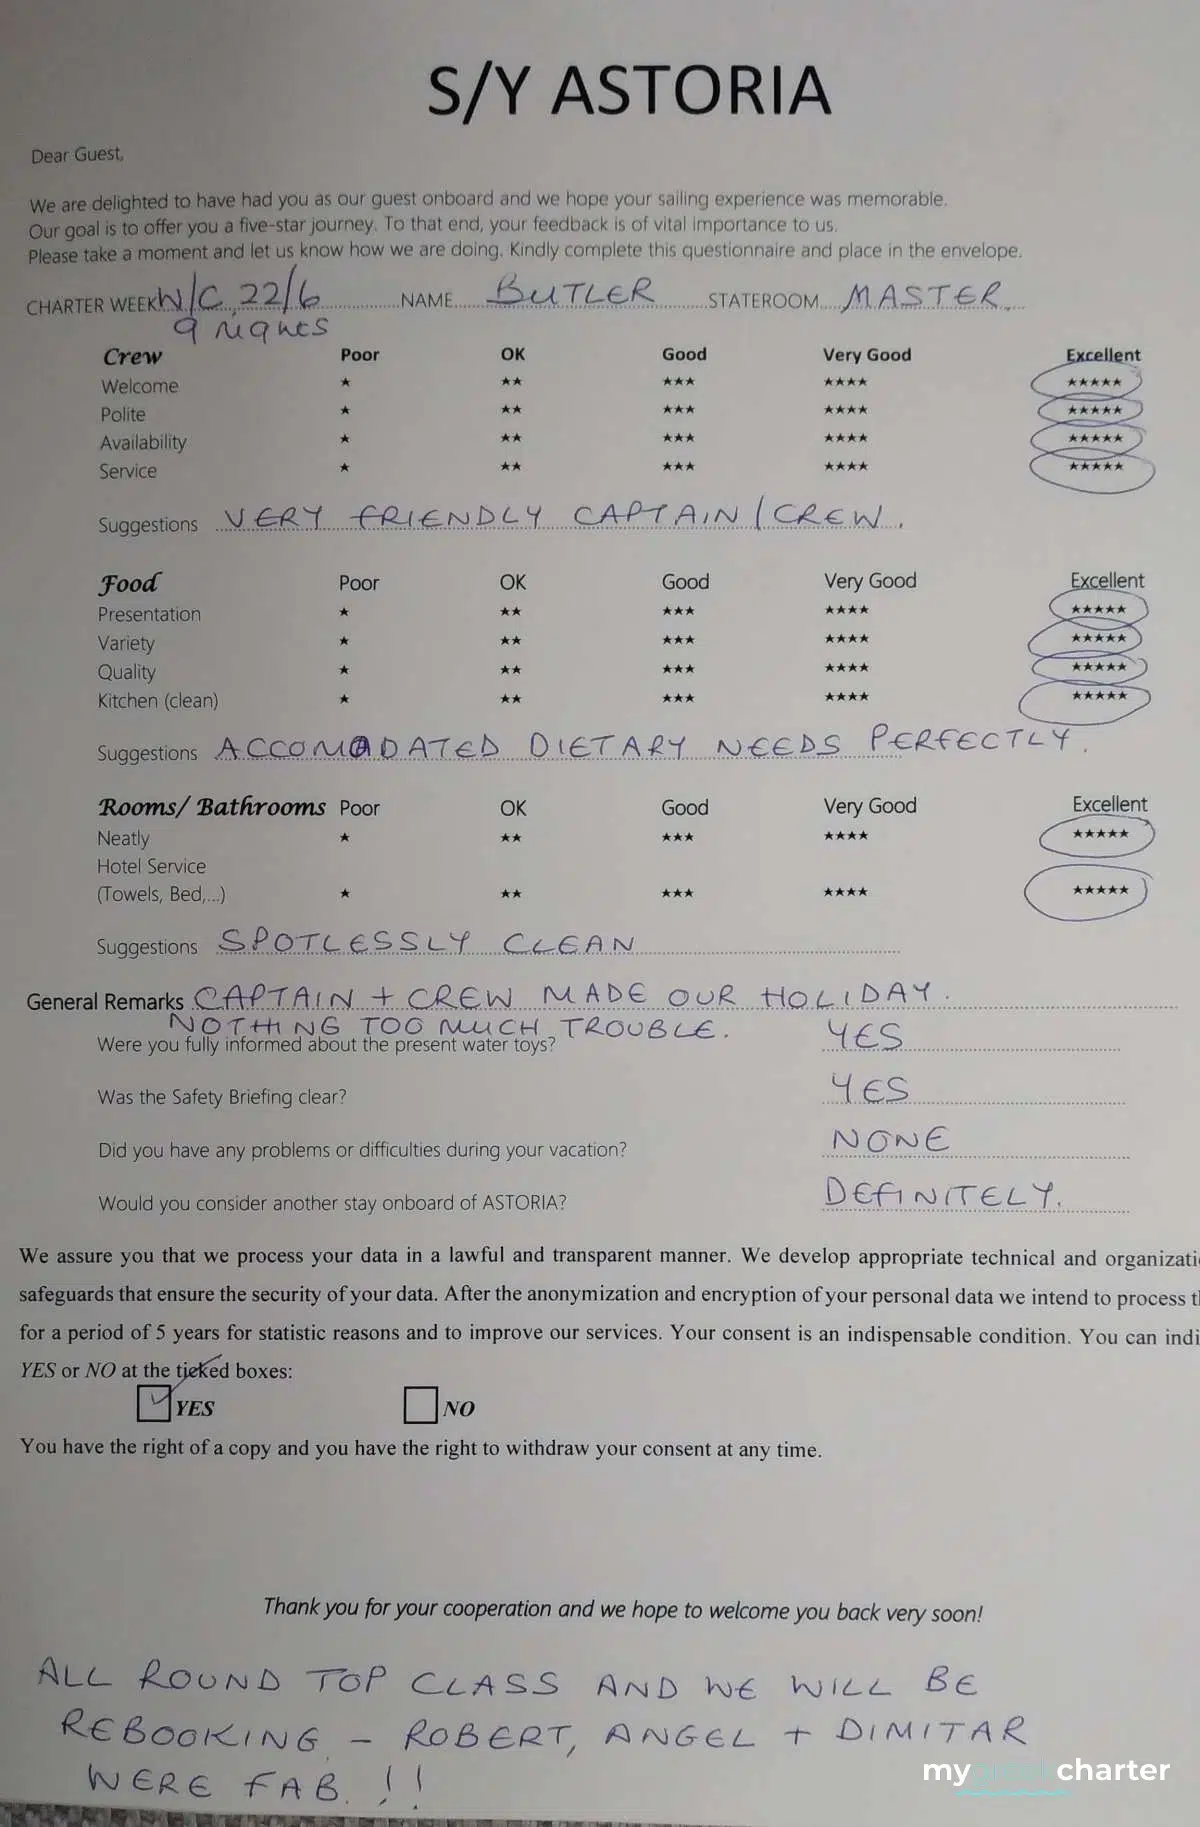 S/Y ASTORIA
Dear Guest,
We are delighted to have had you as our guest onboard and we hope your sailing experience was memorable.
Our goal is to offer you a five-star journey. To that end, your feedback is of vital importance to us.
Please take a moment and let us know how we are doing. Kindly complete this questionnaire and place in the envelope.
CHARTER WEEK W/C 22/6 NAME BUTLER STATEROOM MASTER
9 nights
Crew Poor OK Good Very Good Excellent
Welcome ★ ★★ ★★★ ★★★★ ★★★★★
Polite ★ ★★ ★★★ ★★★★ ★★★★★
Availability ★ ★★ ★★★ ★★★★ ★★★★★
Service ★ ★★ ★★★ ★★★★ ★★★★★
Suggestions VERY FRIENDLY CAPTAIN/CREW.
Food Poor OK Good Very Good Excellent
Presentation ★ ★★ ★★★ ★★★★ ★★★★★
Variety ★ ★★ ★★★ ★★★★ ★★★★★
Quality ★ ★★ ★★★ ★★★★ ★★★★★
Kitchen (clean) ★ ★★ ★★★ ★★★★ ★★★★★
Suggestions ACCOMODATED DIETARY NEEDS PERFECTLY.
Rooms/ Bathrooms Poor OK Good Very Good Excellent
Neatly ★ ★★ ★★★ ★★★★ ★★★★★
Hotel Service
(Towels, Bed,...) ★ ★★ ★★★ ★★★★ ★★★★★
Suggestions SPOTLESSLY CLEAN
General Remarks CAPTAIN + CREW MADE OUR HOLIDAY.
NOTHING TOO MUCH TROUBLE.
Were you fully informed about the present water toys? YES
Was the Safety Briefing clear? YES
Did you have any problems or difficulties during your vacation? NONE
Would you consider another stay onboard of ASTORIA? DEFINITELY.
We assure you that we process your data in a lawful and transparent manner. We develop appropriate technical and organizati
safeguards that ensure the security of your data. After the anonymization and encryption of your personal data we intend to process th
for a period of 5 years for statistic reasons and to improve our services. Your consent is an indispensable condition. You can indi
YES or NO at the ticked boxes:
YES NO
You have the right of a copy and you have the right to withdraw your consent at any time.
Thank you for your cooperation and we hope to welcome you back very soon!
ALL ROUND TOP CLASS AND WE WILL BE
REBOOKING - ROBERT, ANGEL + DIMITAR
WERE FAB. !!
mygreekcharter